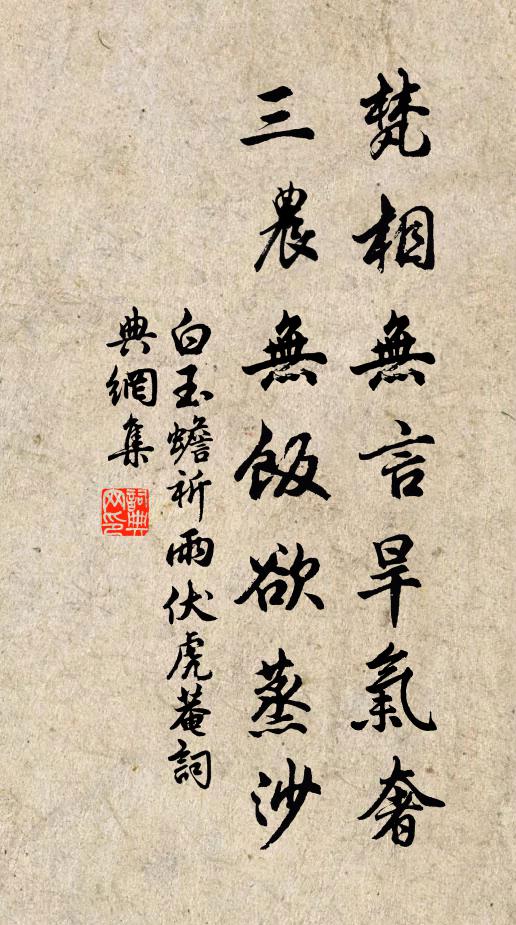 梵相無言旱氣奢
三農無飯欲蒸沙
白玉蟾祈雨伏虎菴詞
典網集
詞典网印